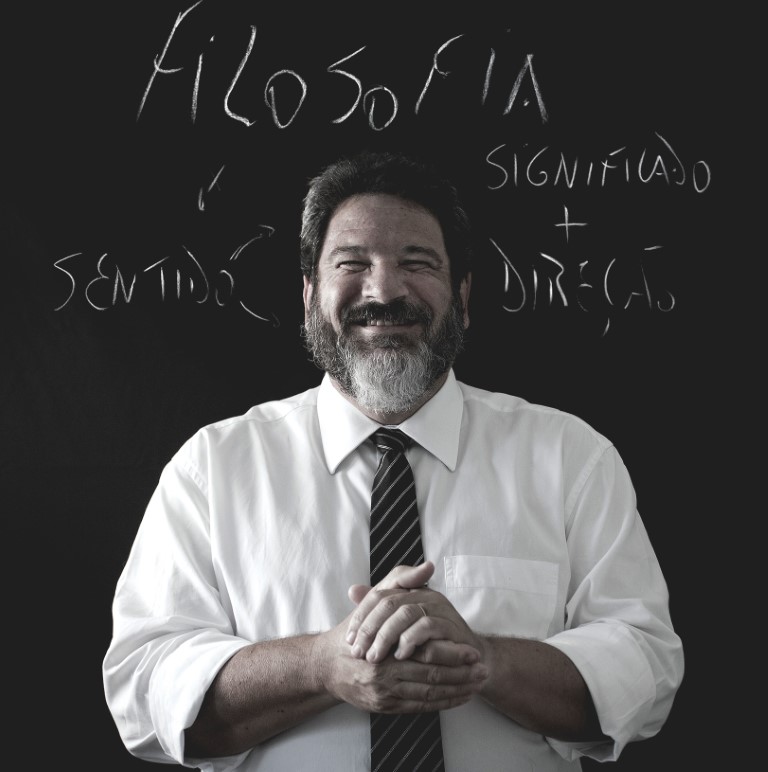 FILOSOFIA
SENTIDO
SIGNIFICADO
+
DIREÇÃO